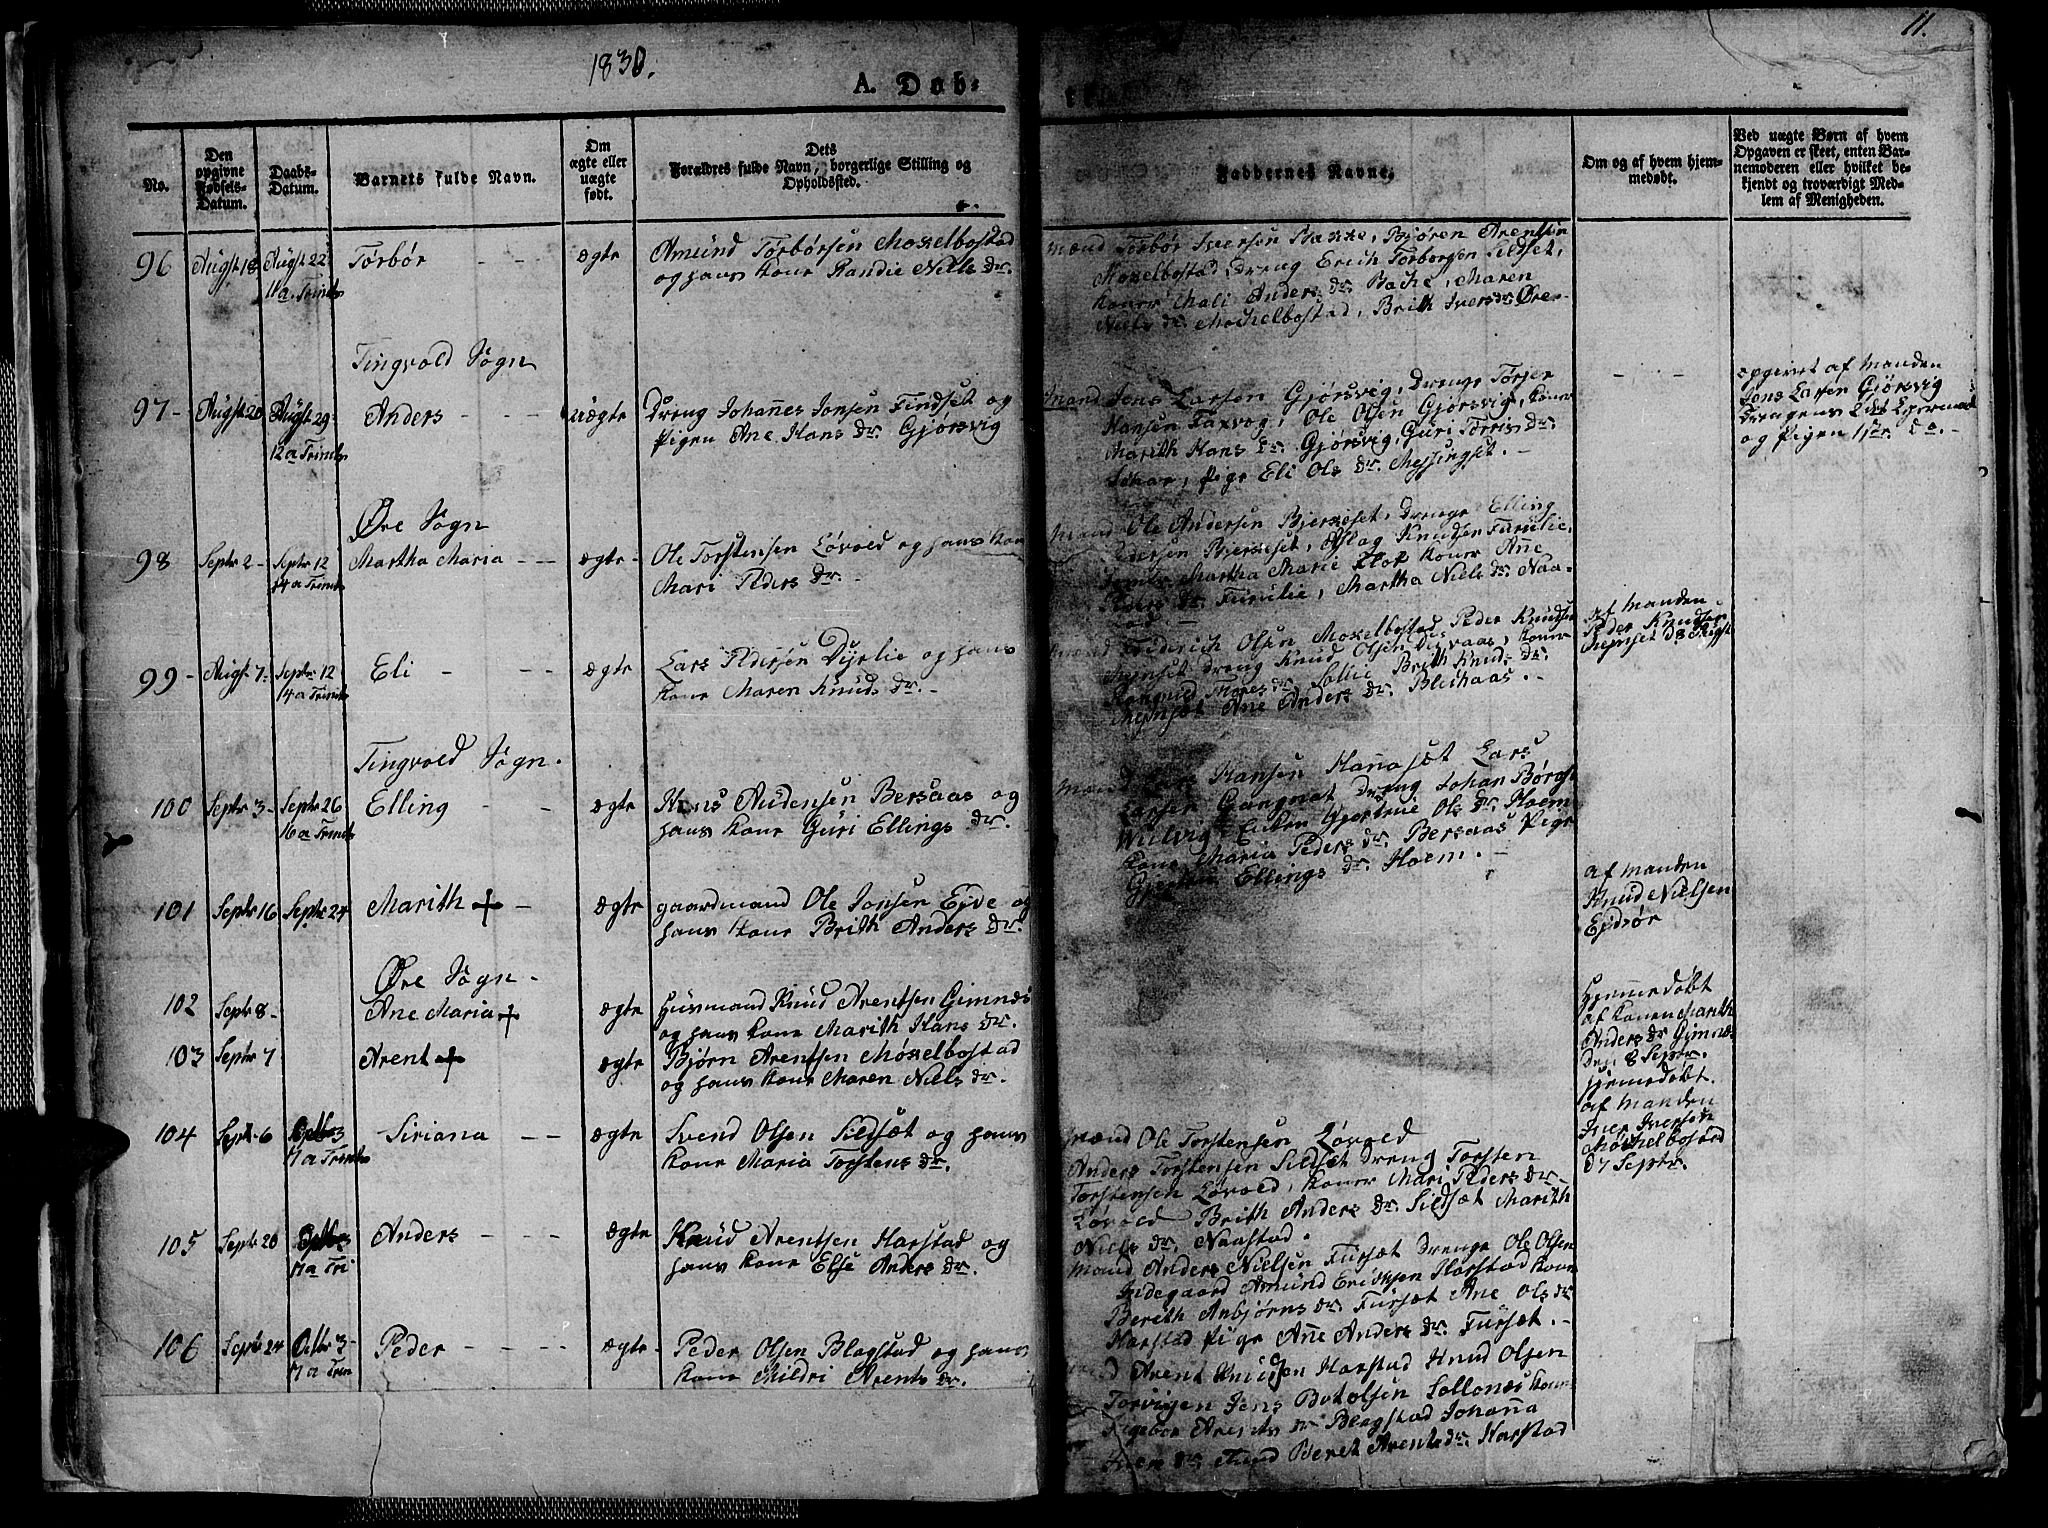 1830.
11.
A. Døb-
No.
Den opgivne Fødsels-Datum.
Daabs-Datum.
Barnets fulde Navn.
Om ægte eller uægte født.
Dets Forældres fulde Navn, borgerlige Stilling og Opholdssted.
Faddernes Navne.
Om og af hvem hjemmedøbt.
Ved uægte Børn af hvem Opgaven er skeet, enten Barnemoderen eller hvilket bekjendt og troværdigt Medlem af Menigheden.
96 Augst 18 Augst 22 11 a. Trinits Torbør - - - ægte
Amund Torbørsen Moxelbostad
og hans Kone Randie Niels Dr.
mænd Torbør Iversen Bakke, Bjøren Arentsen
Moxelbostad, Dreng Erich Torborgsen Sildset,
Koner Mali Anders Dr. Bache, Maren
Niels Dr. Mochelbostad, Brith Ivers Dr. Øre
Tingvold Sogn
97 - Augst 20 Augst 29 12 a Trinits Anders - - - uægte
Dreng Johannes Jonsen Findset og
Pigen Ane Hans Dr. Gjørsvig
Mand Jens Larsen Gjørsvig, Drenge Torjer
Hansen Faxvog, Ole Olsen Gjørsvig, Koner
Marith Hans Dr. Gjørsvig, Guri Torris Dr.
Pige Eli Ols Dr. Messingset. -
opgivet af Manden
Jens Larsen Gjørsvig
og Pigen 1ste Do. -
Øre Sogn
98 Septr 2 - Septr 12 14 a Trinits Martha Maria - - ægte -
Ole Torstensen Løvold og hans Kone
Mari Peders Dr. -
Mand Ole Andersen Bjerkeset, Drenge Elling
Pedersen Bjerkeset, Aslag Knudsen Furulie,
Martha Marie Koner Anne
Peders Dr. Furulie, Martha Niels Dr. Naa-
stad. -
99 - Augst 7 - Septr 12 14 a Trinits Eli - - ægte
Lars Pedersen Dyrlie og hans
Kone Maren Knuds Dr. -
Mænd Friderich Olsen Moxelbostad Peder Knudsen
Dreng Knud Olsen Koner
Brith Knuds Dr.
Ane Anders Dr. Bleihaas. -
af Manden
Peder Knudsen
d 8 Augst
Tingvold Sogn.
100 Septr 3 - Septr 26 16 a Trinits Elling - - ægte
Hans Andersen Bersaas og
hans Kone Guri Ellings Dr.
Mænd Lars Hansen Hanaset Lars
Larsen Gangnat Dreng Johan
Enken Gjertrue Ols Dr. Hoem
Kone Maria Peders Dr. Bersaas Pige
Ellings Dr. Hoem. -
101 Septr 16 Septr 24 Marith + - ægte
Gaardmand Ole Jonsen Ejde og
hans Kone Brith Anders Dr.
af Manden
Knud Nielsen
Ejdsør
Øre Sogn -
102 Septr 8 - Ane Maria + ægte
Huusmand Knud Arentsen Gimnes
og hans Kone Marith Hans Dr.
Hjemmedøbt
af Konen Marith
Anders Dr Gimnæs
den 8 Septr.
103 Septr 7 Arent + ægte
Bjørn Arentsen Moxelbostad
og hans Kone Maren Niels Dr.
Hjemedøbt.
af Manden
Iver Iversen
Mochelbostad
d 7 Septr.
104 Septr 6 Octbr 3 17 a Trinits Siriana - - ægte
Svend Olsen Sildsæt og hans
Kone Maria Torstens Dr.
Mænd Ole Torstensen Løvold
Anders Torstensen Sildset Dreng Torsten
Torstensen Løvold, Koner Mari Peders Dr.
Løvold Brith Anders Dr. Sildsæt Marith
Niels Dr. Naastad.
105 Septr 20 Octbr 3 17 a Tri Anders - - ægte
Knud Arentsen Harstad og
hans Kone Else Anders Dr.
Mand Anders Nielsen Fursæt Drenge Ole Olsen
Indegaard Amund Erichsen Harstad Kone
Berith Anbjørns Dr. Fursæt Ane Ols Dr
Harstad Pige Ane Anders Dr. Fursæt. -
106 Septr 24 Octbr 3 - 17 a Trin Peder - - - - ægte -
Peder Olsen Blagstad og hans
Kone Mildri Arents Dr.
Mænd Arent Knudsen Harstad Knud Olsen
Torvigen Jens Botolsen Sollenes Kone
Ingebor Arents Dr Blagstad Johanna
Iver Dr. Sund Beret Arents Dr. Harstad